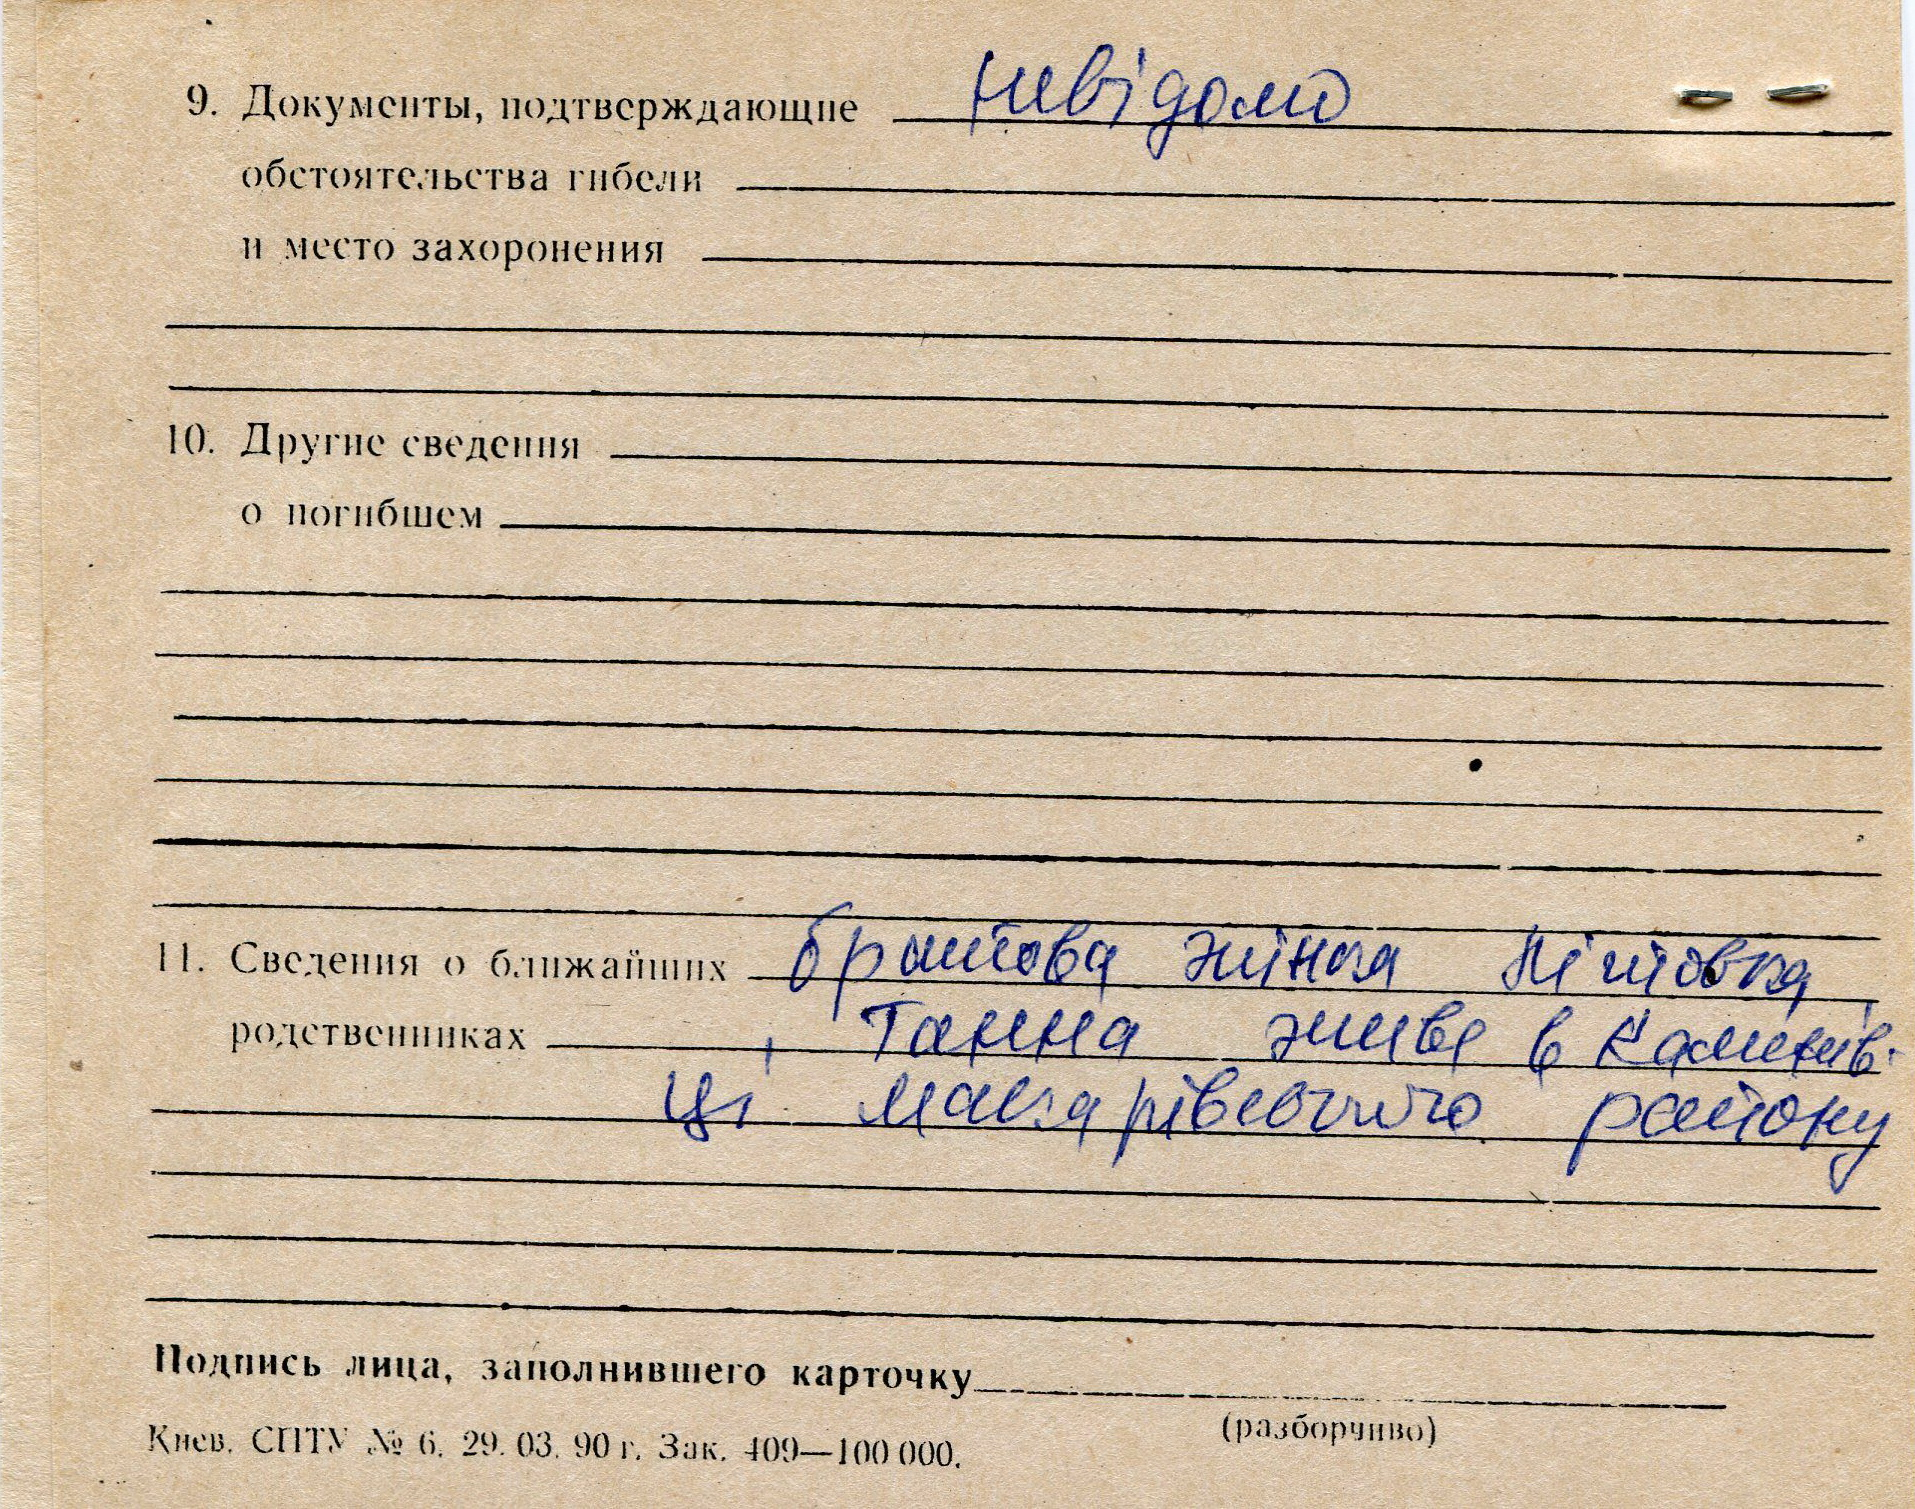 9. Документы, подтверждающие невідомо
обстоятельства гибели
и место захоронения
10. Другие сведения
о погибшем
11. Сведения о ближайших братова жінка
родственниках Ганна живе в Калинів-
ці Макарівського району
Подпись лица, заполнившего карточку
(разборчиво)
Киев. СПТУ № 6. 29. 03. 90 г. Зак. 409—100 000.